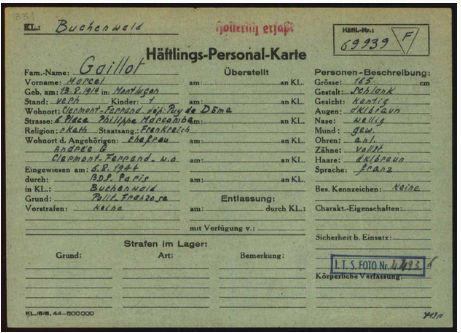 KL.: Buchenwald
Hollerith erfaßt
Häftl.-Nr.:
69939 F
Häftlings-Personal-Karte
Fam.-Name: Gaillot
Vorname: Marcel
Geb. am: 1914 in Montluçon
Stand: verh Kinder: 1
Wohnort: Clermont-Ferrand, dép. Puy de Dôme
Strasse: Place Philippe
Religion: rkath Staatsang.: Frankreich
Wohnort d. Angehörigen: Ehefrau
Andrée G
Clermont-Ferrand w.o.
Eingewiesen am: 6.8.1944
durch: BDS. Paris
in KL.: Buchenwald
Grund: Polit. Franzose
Vorstrafen: keine
Überstellt
am: an KL.
am: an KL.
am: an KL.
am: an KL.
am: an KL.
am: an KL.
Entlassung:
am: durch KL.:
mit Verfügung v.:
Personen-Beschreibung:
Grösse: 165 cm
Gestalt: schlank
Gesicht: kantig
Augen: dklbraun
Nase: wellig
Mund: gew.
Ohren: anl.
Zähne: vollst.
Haare: dklbraun
Sprache: franz
Bes. Kennzeichen: keine
Charakt.-Eigenschaften:
Sicherheit b. Einsatz:
I.T.S. FOTO Nr.
Körperliche Verfassung:
Strafen im Lager:
Grund: Art: Bemerkung: